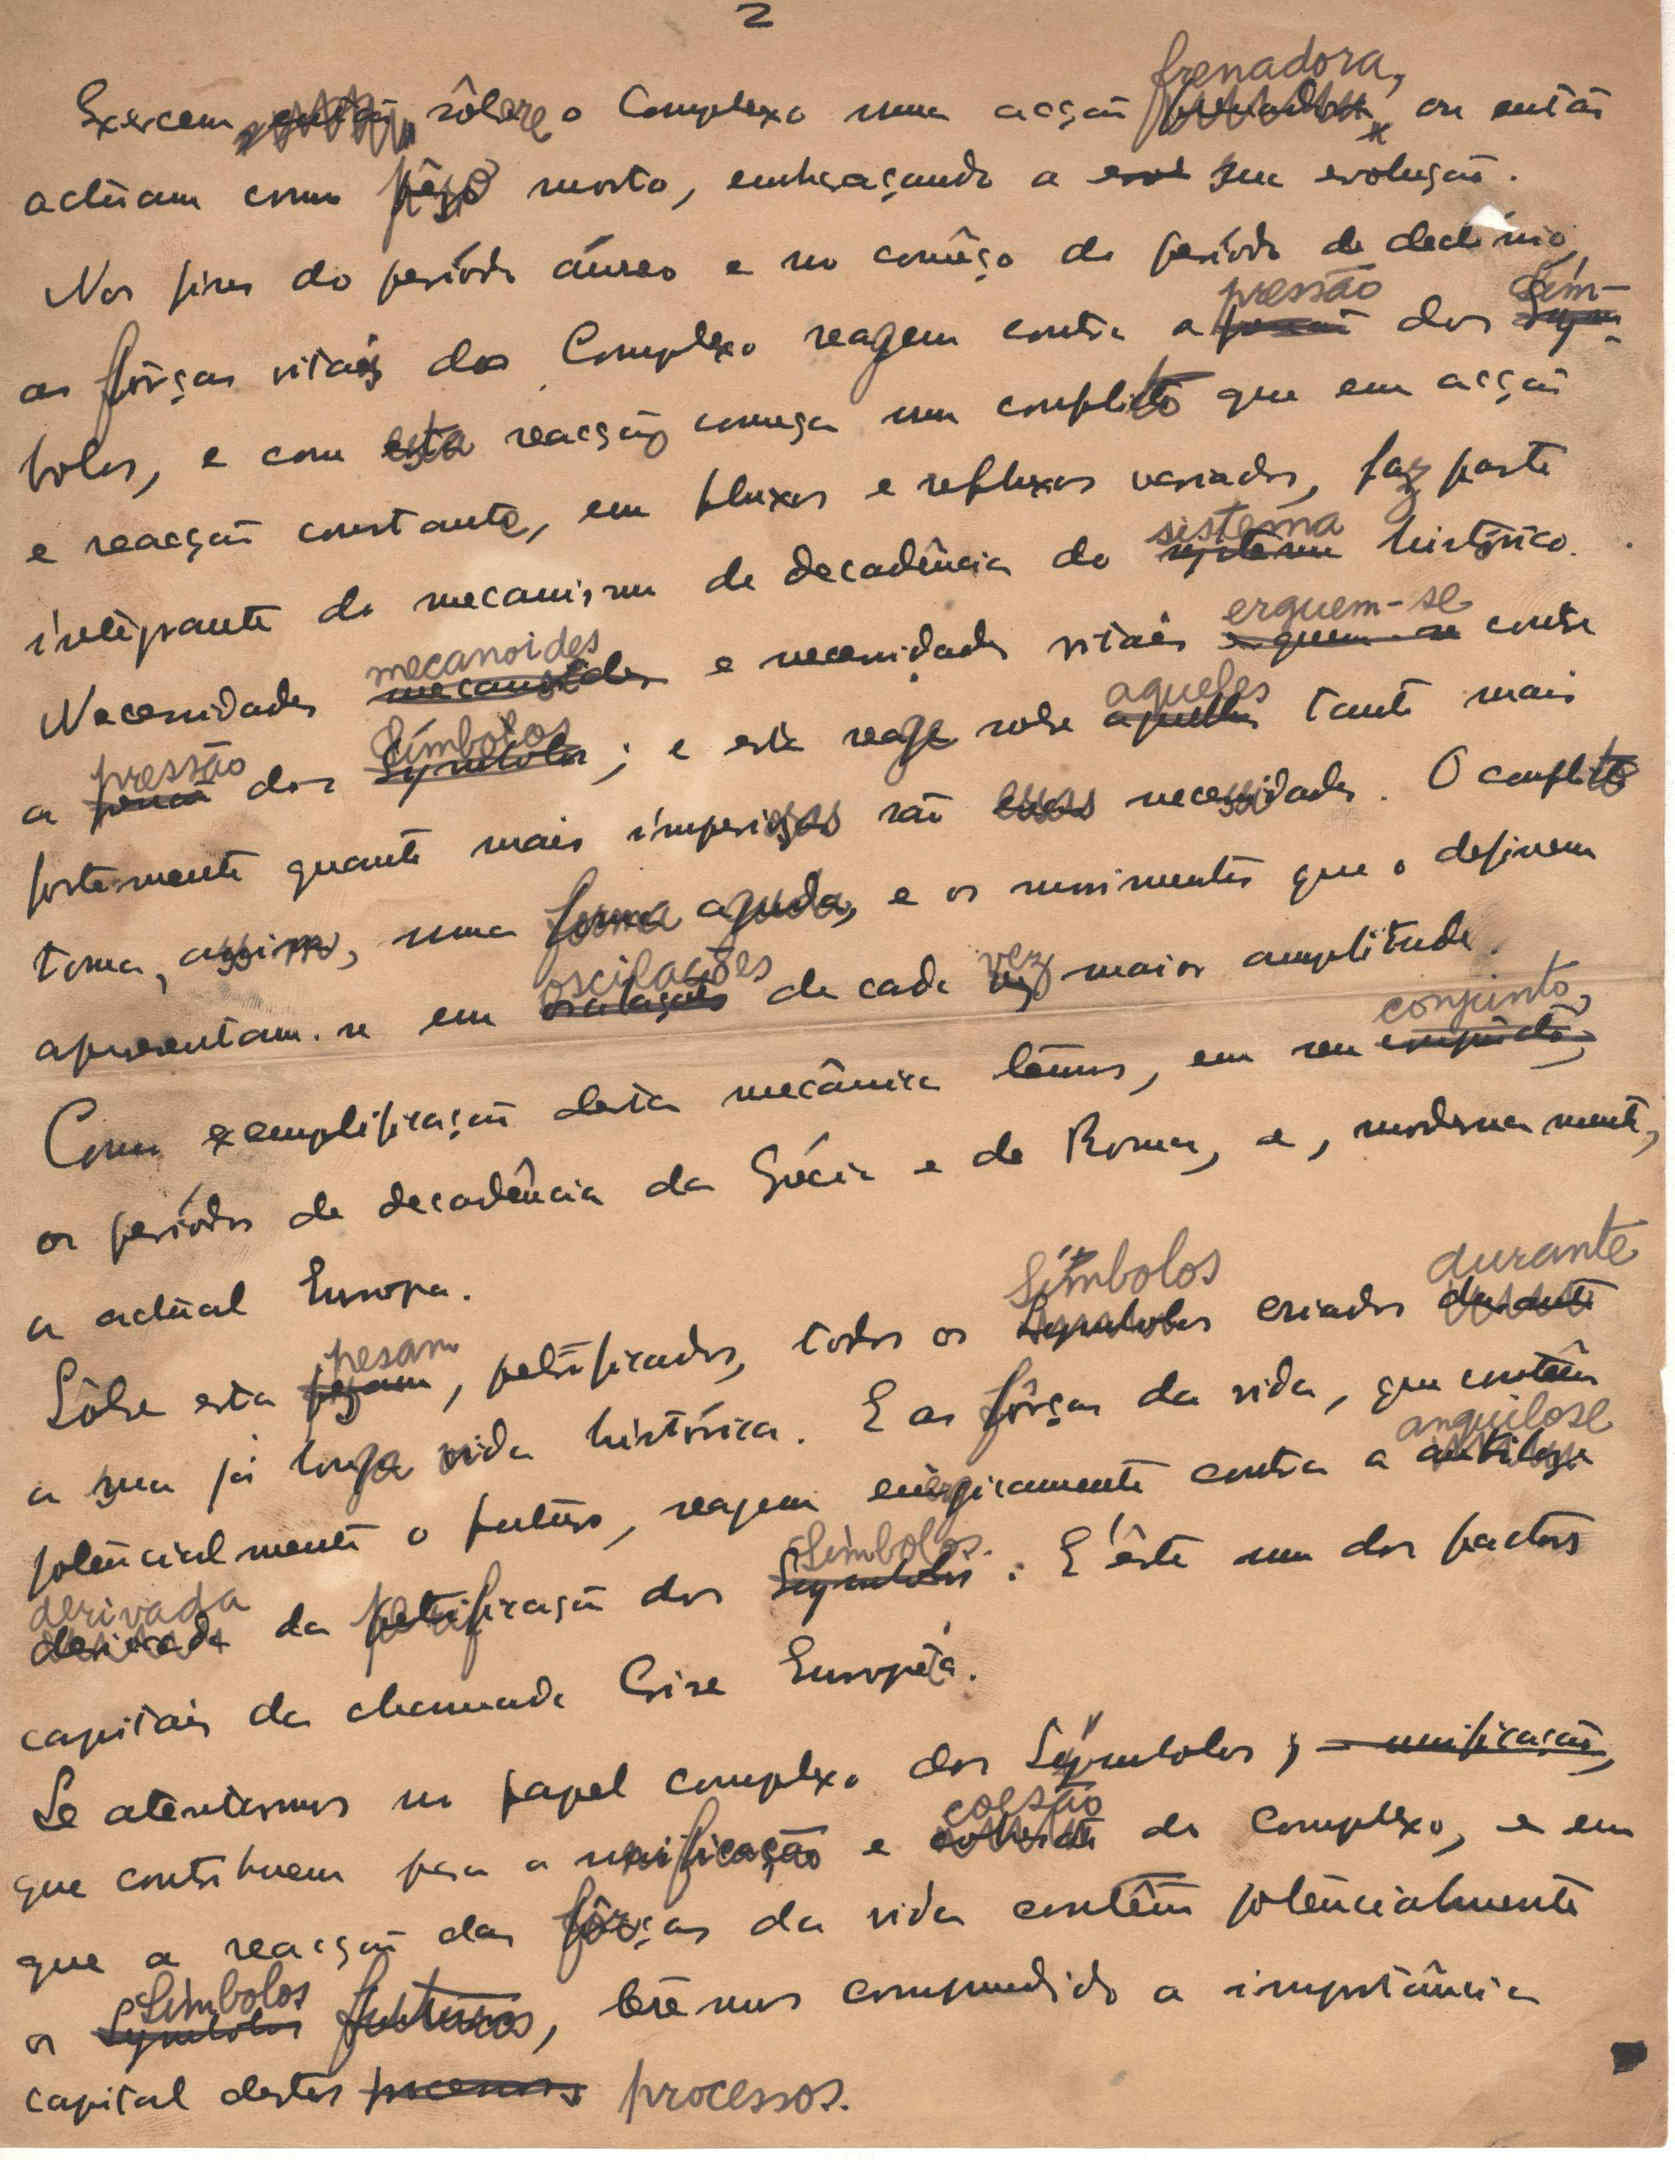 2
Exercem sôbre o Complexo uma acção frenadora, ou então
actúam como pêso morto, embaraçando a sua evolução.
Nos fins do período áureo e no comêço do período de declínio,
as fôrças vitais do Complexo reagem contra a pressão dos Sím-
bolos, e com esta reacção começa um conflito que em acção
e reacção constante, em fluxos e refluxos variados, faz parte
integrante do mecanismo de decadência do sistema histórico.
Necessidades mecanoides e necessidades vitais erguem-se contra
a pressão dos Símbolos; e esta reage sobre aqueles tanto mais
fortemente quanto mais imperiosas são essas necessidades. O conflito
toma, assim, uma forma aguda, e os movimentos que o definem
apresentam-se em oscilações de cada vez maior amplitude.
Como exemplificação desta mecânica têmos, em seu conjunto,
os períodos de decadência da Grécia e de Roma, e, modernamente,
a actúal Europa.
Sôbre esta pesam, petrificados, todos os Símbolos criados durante
a sua já longa vida histórica. E as fôrças da vida, que contêm
potêncialmente o futúro, reagem enérgicamente contra a anquilose
derivada da petrificação dos Símbolos. E' êste um dos factores
capitais da chamada Crise Européa.
Se atentarmos no papel complexo dos Símbolos, unificação,
que contribuem para a unificação e coesão do Complexo, e em
que a reacção das fôrças da vida contêm potêncialmente
os Símbolos futuros, têremos compreendido a importância
capital destes processos.